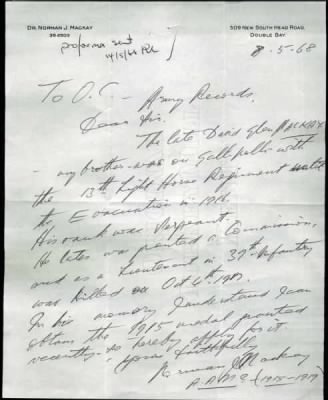 DR. NORMAN J. MACKAY
36-2503
509 NEW SOUTH HEAD ROAD,
DOUBLE BAY.
proforma sent
14/5/68
8.5.68
To O.C. - Army Records.
Dear Sir.
The late David Glen MACKAY
- my brother - was on Gallipoli with
the 13th Light Horse Regiment until
the Evacuation in 1915.
His rank was Sergeant.
He later was granted a Commission,
and as a Lieutenant in 37th Infantry
was killed on Oct 4th 1917.
In his memory I understand I can
obtain the 1915 medal granted
recently - so hereby apply for it
Yours faithfully
Norman J Mackay
A.A.M.C. (1915-1919)